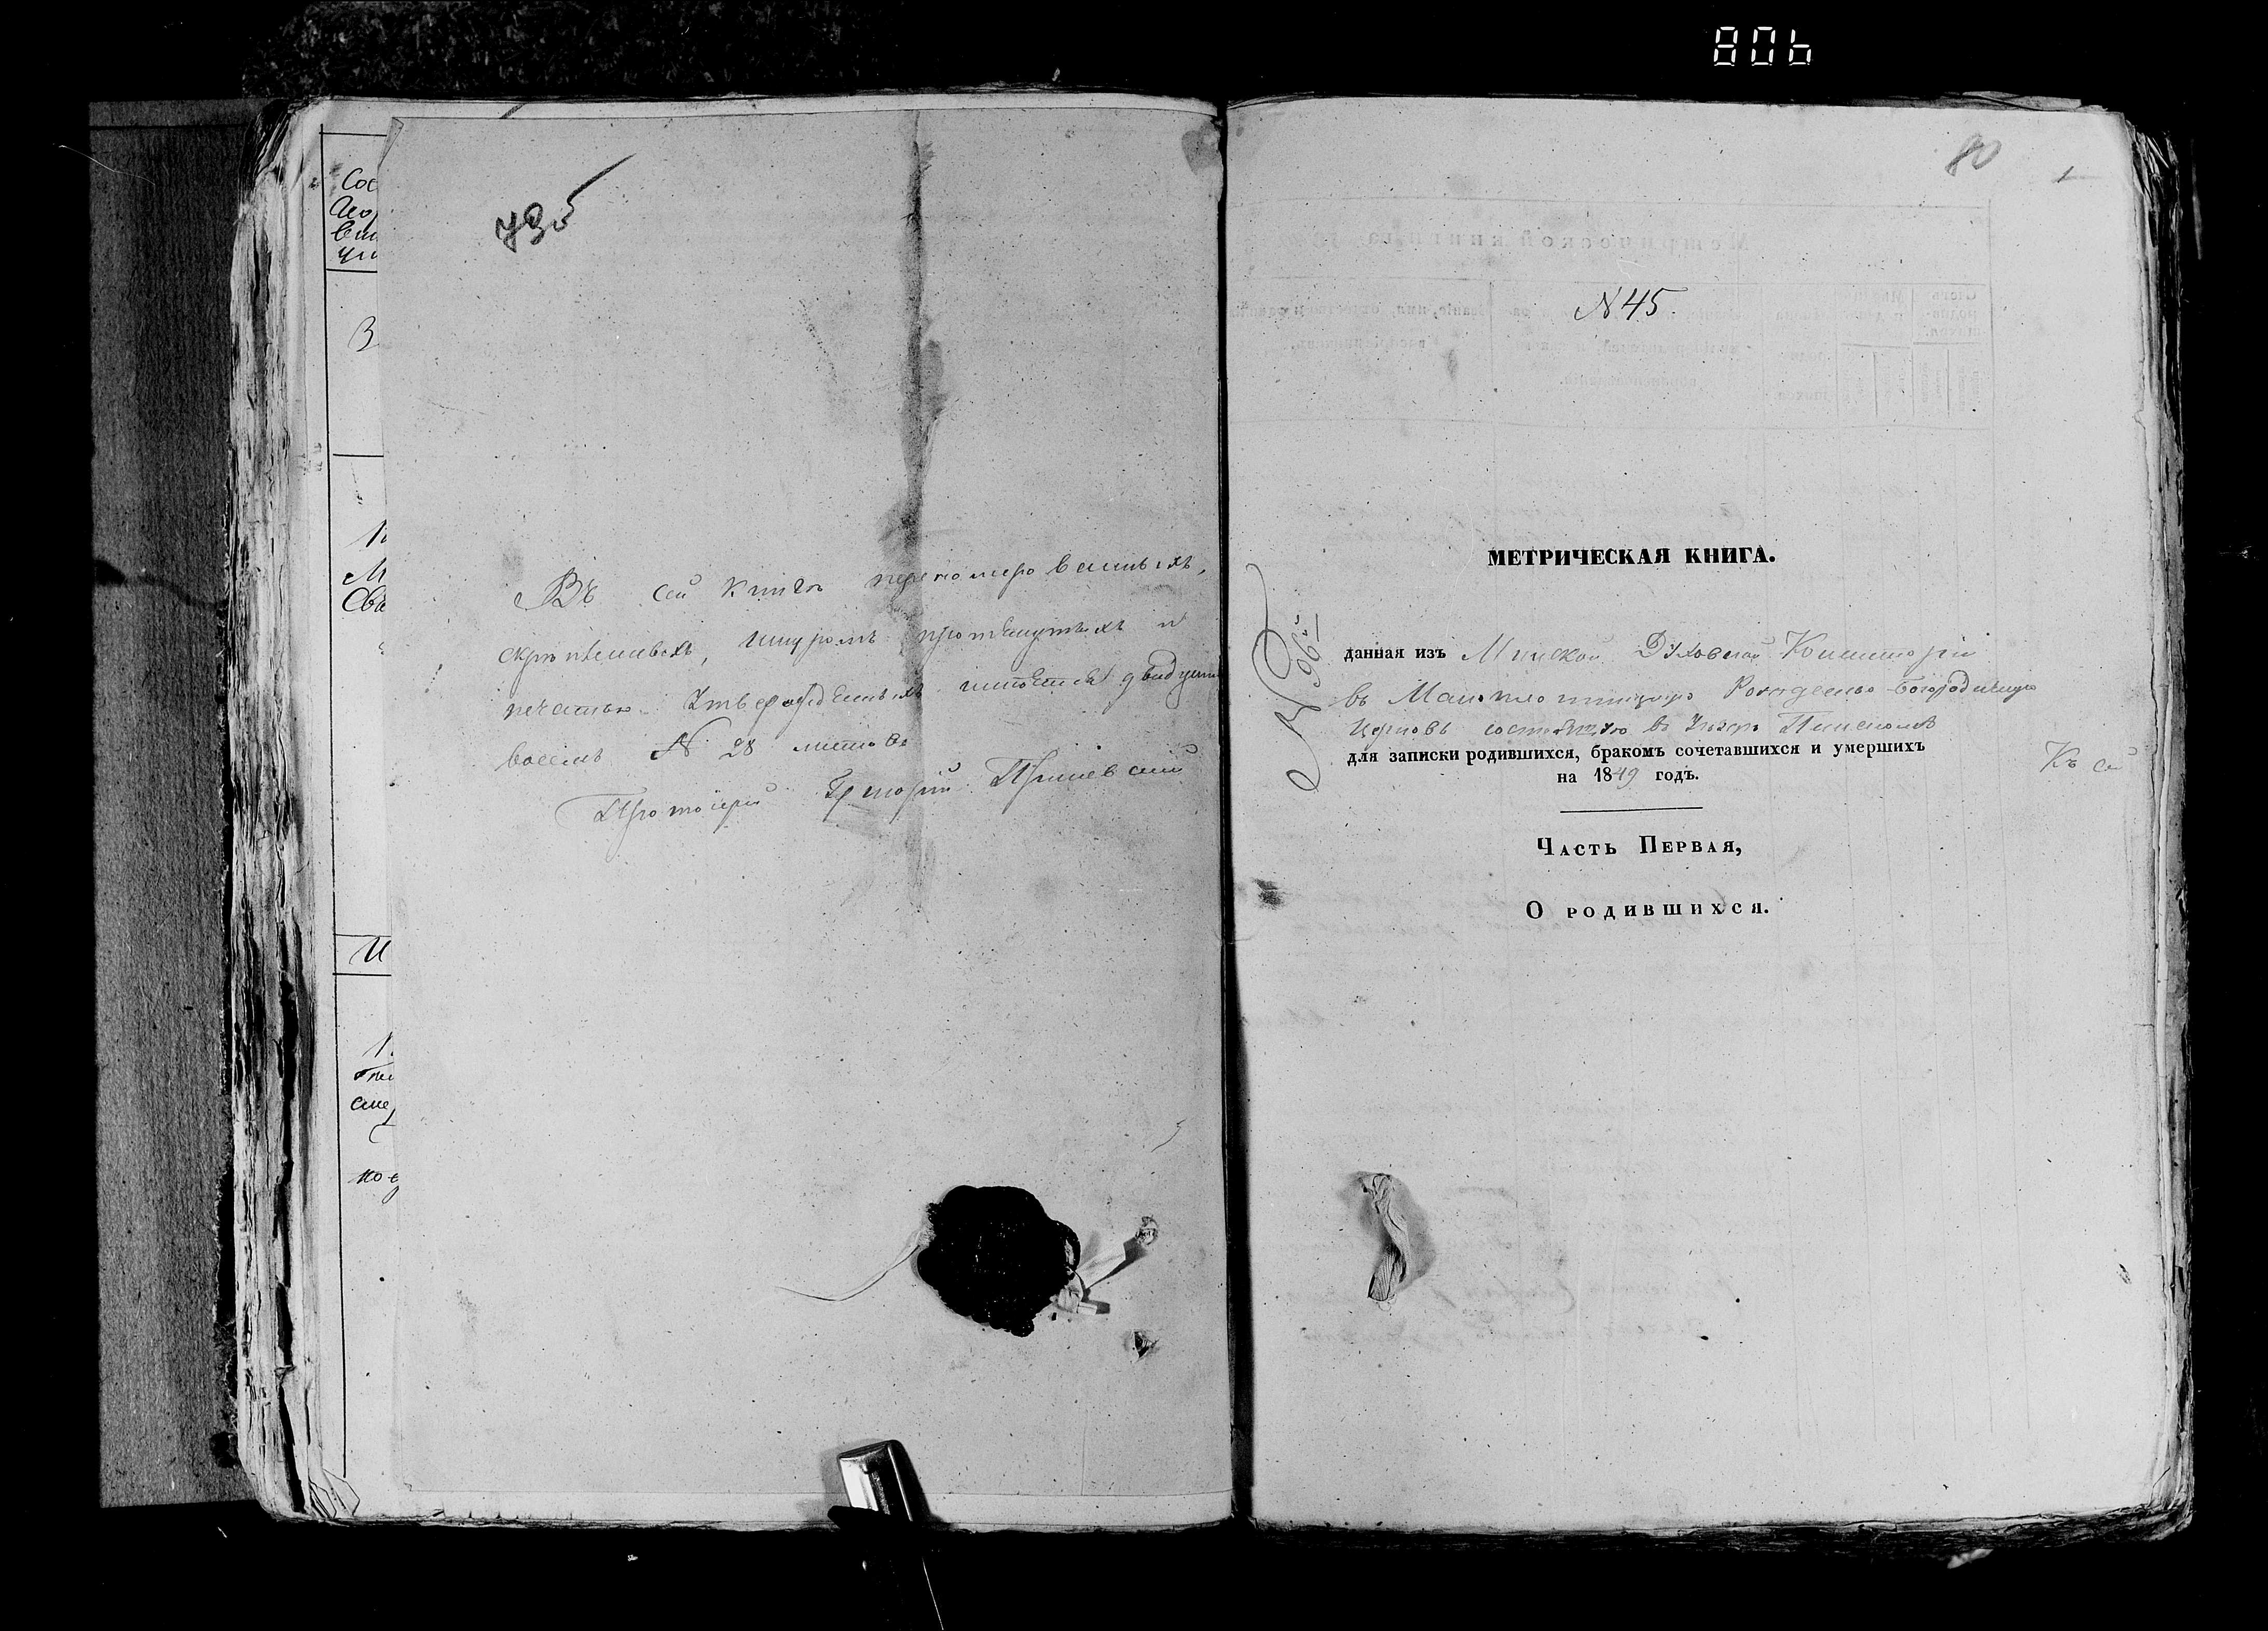 806
795
Въ сей книгѣ перенумерованныхъ,
скрѣпленныхъ, шнуромъ протянутыхъ и
печатью утвержденныхъ имѣется двадцать
восемь N 28 листовъ
Протоіерей Григорій
80
1
N 45.
МЕТРИЧЕСКАЯ КНИГА.
N 96й
данная изъ Минской Духовной Консисторіи
въ Рождество-Богородичную
Церковь состоящую въ Уѣздѣ Пинскомъ
для записки родившихся, бракомъ сочетавшихся и умершихъ
на 1849 годъ.
Къ сей
Часть Первая,
О родившихся.